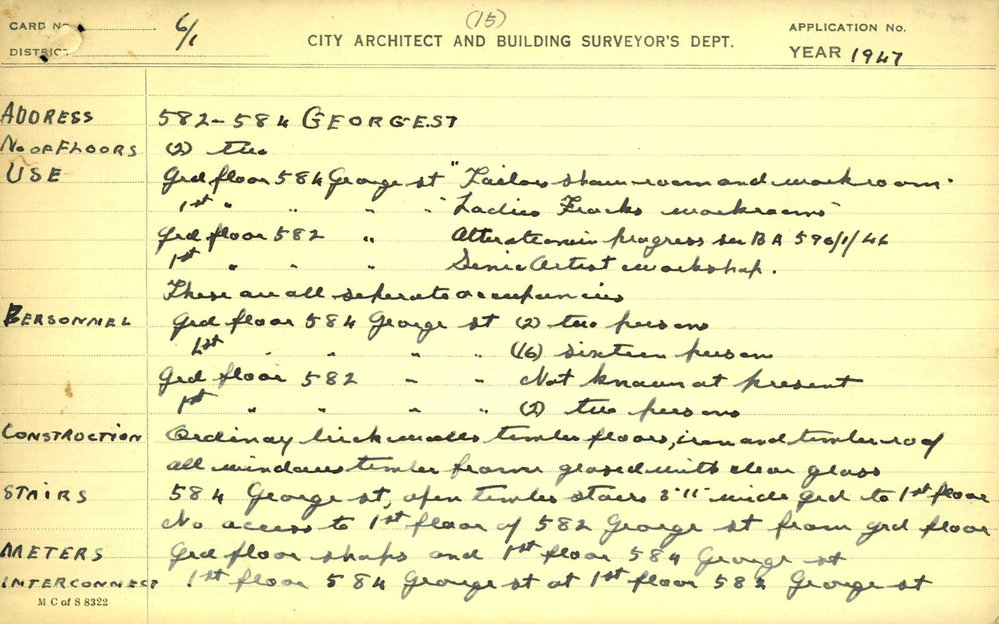 (15)
CARD No. 6/1 CITY ARCHITECT AND BUILDING SURVEYOR'S DEPT. APPLICATION No.
DISTRICT YEAR 1947
ADDRESS 582-584 GEORGE ST
No OF FLOORS (2) two
USE Grd floor 584 George st "Tailors showroom and workroom.
1st " " " " "Ladies Frocks workrooms"
Grd floor 582 " Alterations in progress see BA 590/1/46
1st " " " Scenic Artist workshop.
These are all seperate occupancies
PERSONNEL Grd floor 584 George st (2) two persons
1st " " " " (16) sixteen persons
Grd floor 582 " " Not known at present
1st " " " " (2) two persons
CONSTRUCTION Ordinary brick walls timber floors, iron and timber roof
all windows timber frame glased with clear glass
STAIRS 584 George st, open timber stairs 3'11" wide grd to 1st floor
No access to 1st floor of 582 George st from grd floor
METERS Grd floor shops and 1st floor 584 George st
INTERCONNECT 1st floor 584 George st at 1st floor 582 George st
M C of S 8322